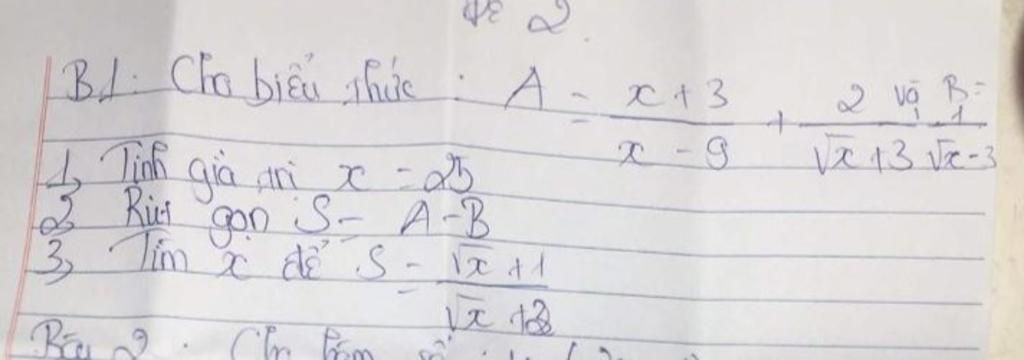 đề 2.
B1. Cho biểu thức : A = (x + 3)/(x - 9) + 2/(√x + 3) và B = 1/(√x - 3)
1, Tính giá trị x = 25
2, Rút gọn S = A - B
3, Tìm x để S = (√x + 1)/(√x +
Bài 2 : Cho hàm số :